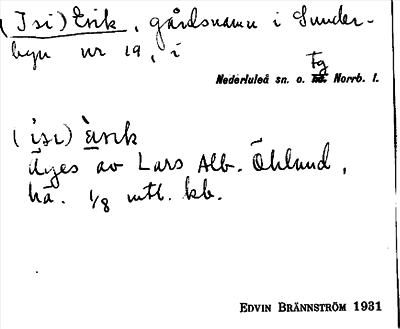 (Isi) Erik, gårdsnamn i Sunder-
byn nr 19, i
Fg
Nederluleå sn. o. hd. Norrb. l.
(isi) Èrik
Äges av Lars Alb. Öhlund,
hä. 1/8 mtl. kb.
EDVIN BRÄNNSTRÖM 1931